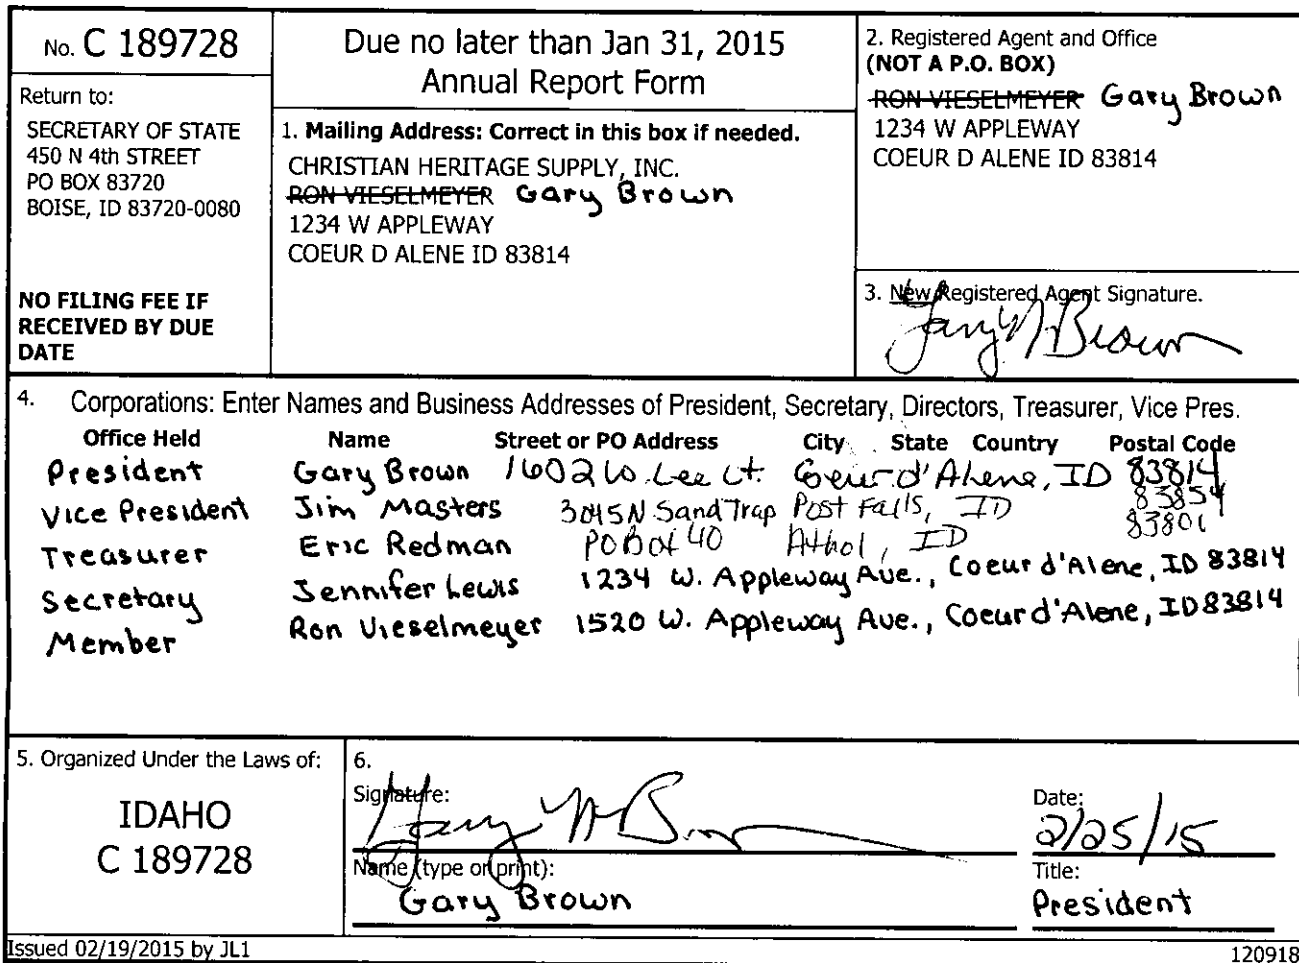 No. C 189728
Return to:
SECRETARY OF STATE
450 N 4th STREET
PO BOX 83720
BOISE, ID 83720-0080
NO FILING FEE IF
RECEIVED BY DUE
DATE
Due no later than Jan 31, 2015
Annual Report Form
1. Mailing Address: Correct in this box if needed.
CHRISTIAN HERITAGE SUPPLY, INC.
RON VIESELMEYER Gary Brown
1234 W APPLEWAY
COEUR D ALENE ID 83814
2. Registered Agent and Office
(NOT A P.O. BOX)
RON VIESELMEYER Gary Brown
1234 W APPLEWAY
COEUR D ALENE ID 83814
3. New Registered Agent Signature.
Gary N Brown
4. Corporations: Enter Names and Business Addresses of President, Secretary, Directors, Treasurer, Vice Pres.
Office Held Name Street or PO Address City State Country Postal Code
President Gary Brown 1602 W. Lee Ct. Coeur d'Alene, ID 83814
Vice President Jim Masters 3045 N Sand Trap Post Falls, ID 83854
Treasurer Eric Redman PO Box 40 Athol, ID 83801
Secretary Jennifer Lewis 1234 W. Appleway Ave., Coeur d'Alene, ID 83814
Member Ron Vieselmeyer 1520 W. Appleway Ave., Coeur d'Alene, ID 83814
5. Organized Under the Laws of:
IDAHO
C 189728
6.
Signature:
Gary N Brown
Name (type or print):
Gary Brown
Date:
2/25/15
Title:
President
Issued 02/19/2015 by JL1
120918